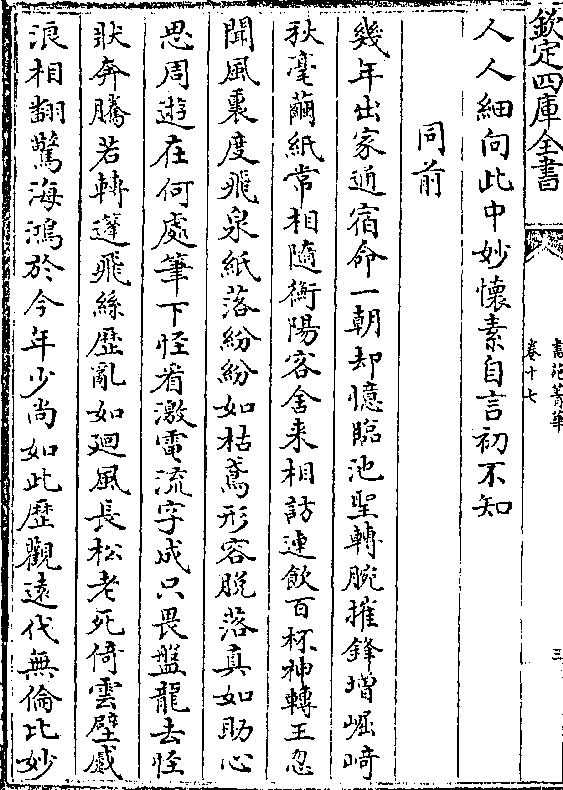 欽定四庫全書
書苑菁華
卷十七
三
人人細向此中妙懷素自言初不知
同前
幾年出家通宿命一朝却憶臨池聖轉腕摧鋒增崛崎
秋毫繭紙常相隨衡陽客舍来相訪連飲百杯神轉王忽
聞風裏度飛泉紙落紛紛如枯鳶形容脫落真如助心
思周遊在何處筆下怪看激電流字成只畏盤龍去怪
狀奔騰若轉蓬飛絲歷亂如廻風長松老死倚雲壁蹙
浪相翻驚海鴻於今年少尚如此歷觀遠代無倫比妙